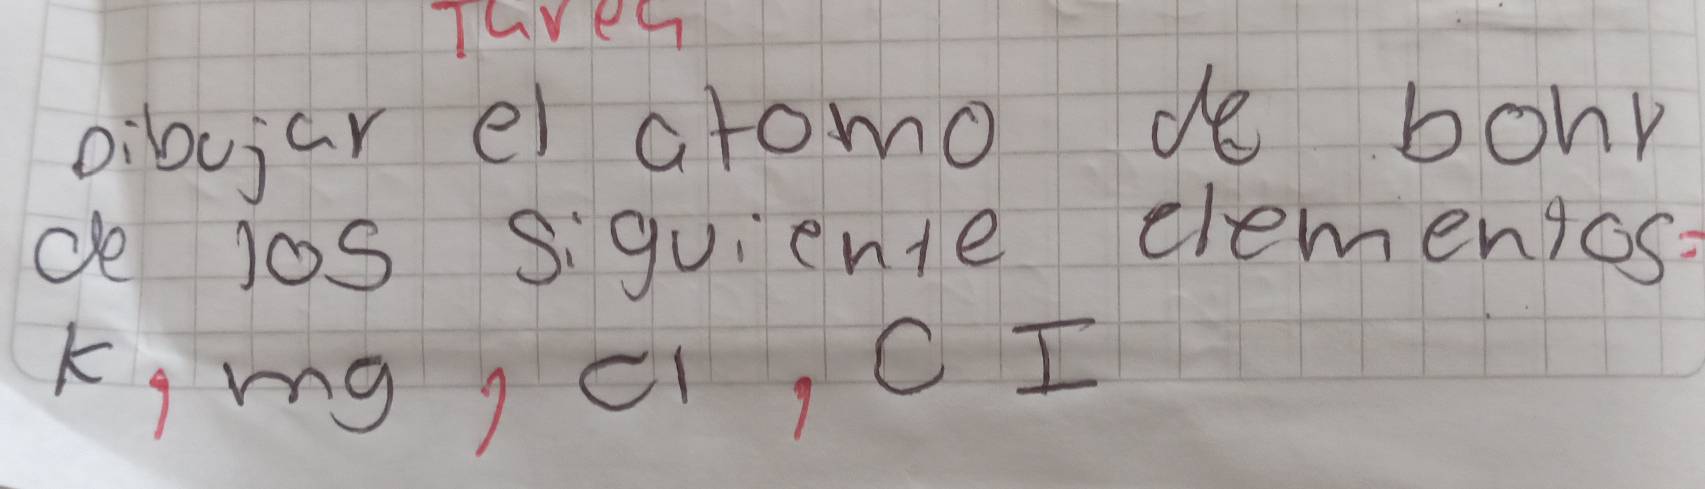 Tarea
Dibujar el atomo de bohr
de los siguiente elementos=
K, mg, cl, C I